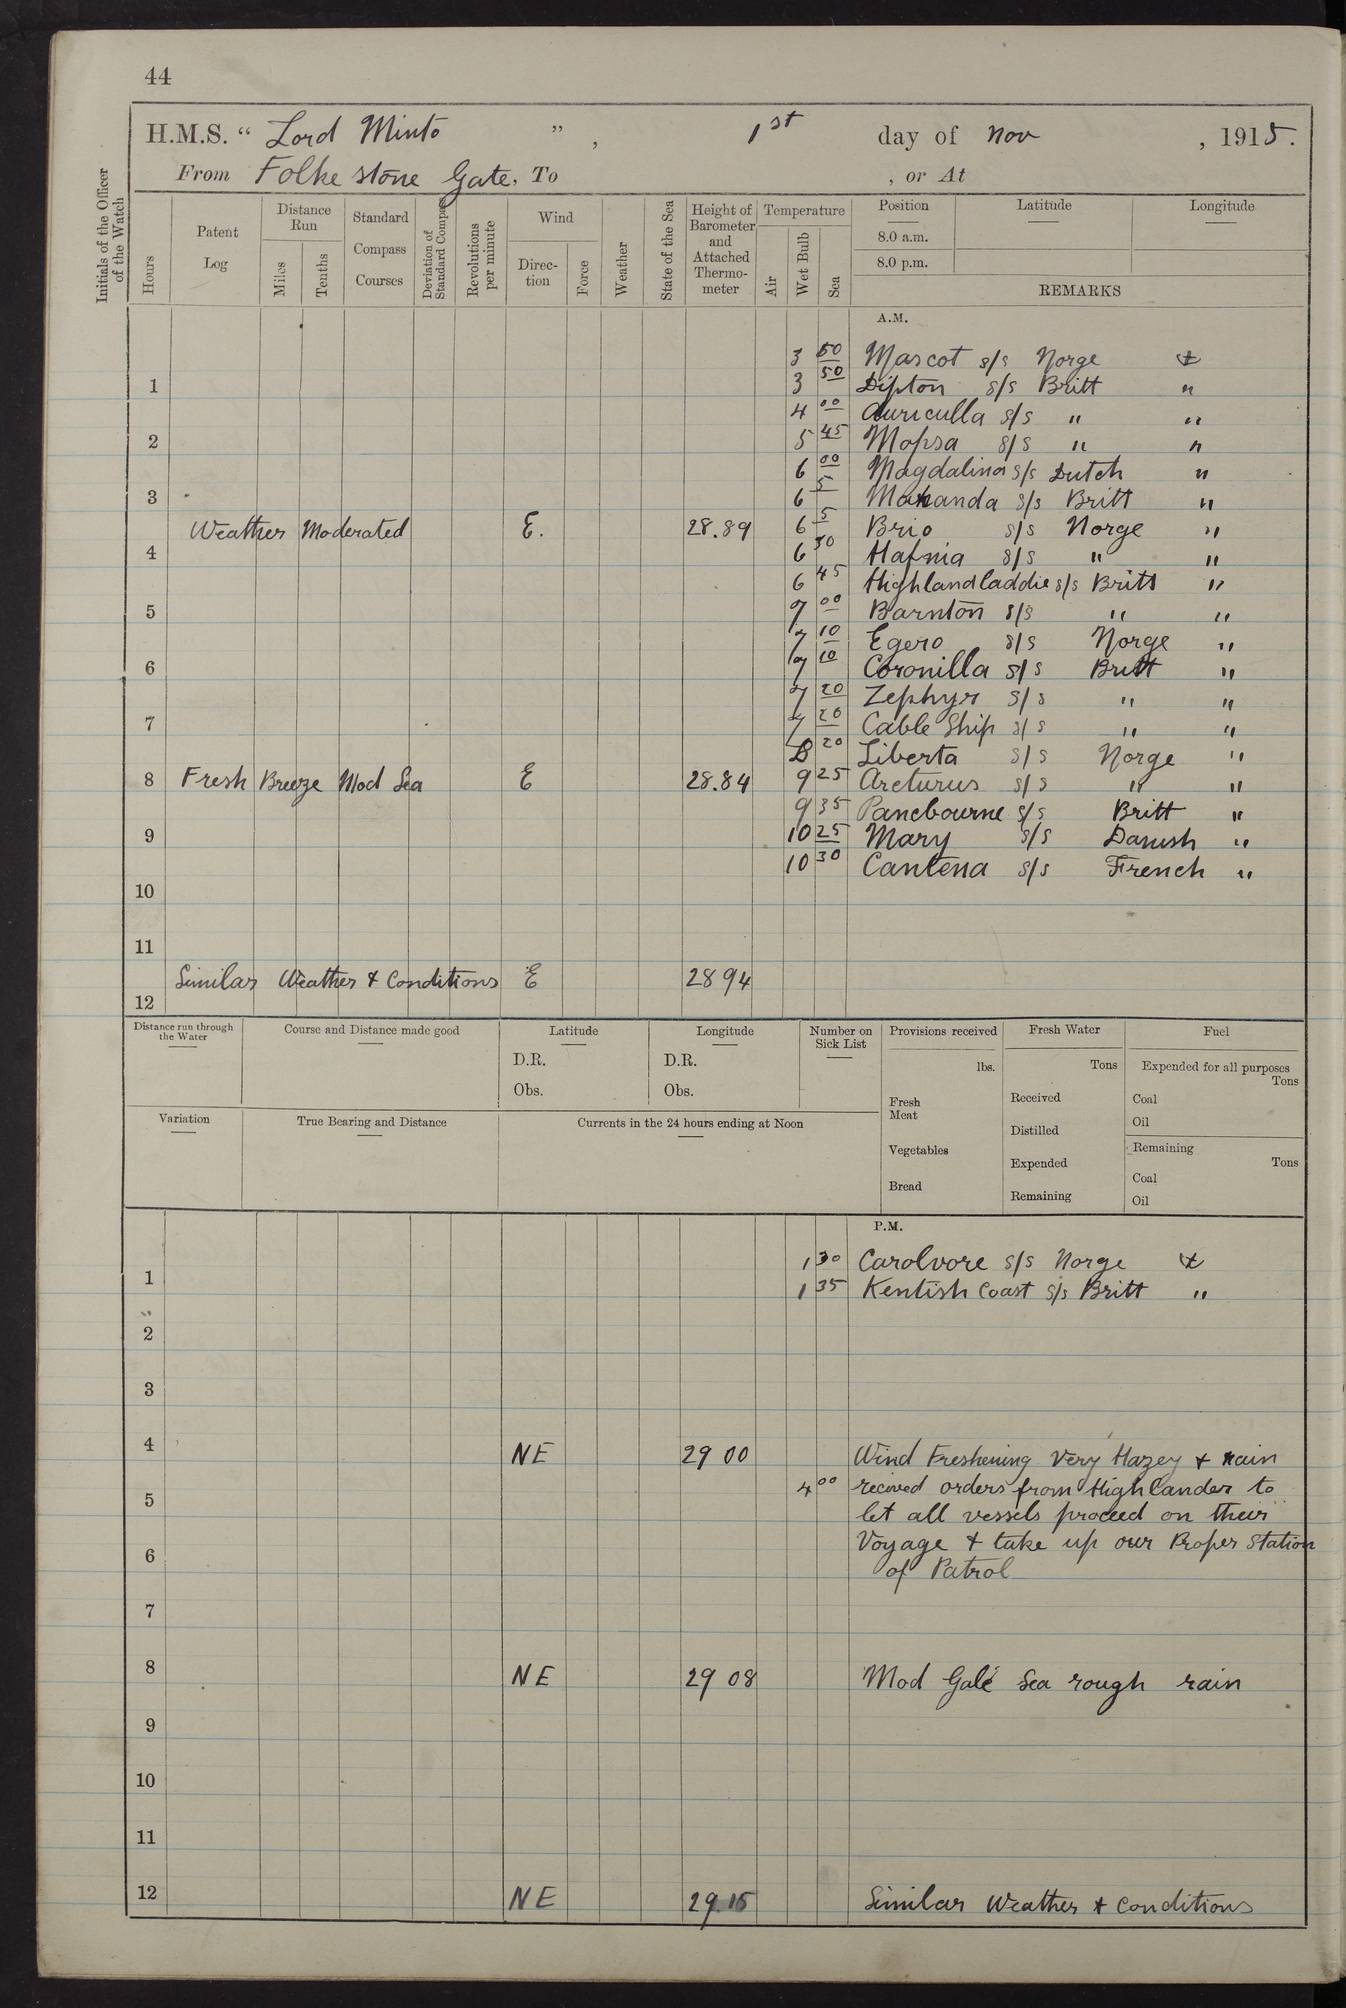 44
H.M.S. “ Lord Minto ” , 1st day of Nov , 1915.
From Folkestone Gate, To , or At
Initials of the Officer of the Watch
Hours
Patent Log
Distance Run
Miles
Tenths
Standard Compass Courses
Deviation of Standard Compass
Revolutions per minute
Wind
Direction
Force
Weather
State of the Sea
Height of Barometer and Attached Thermometer
Temperature
Air
Wet Bulb
Sea
Position
8.0 a.m.
8.0 p.m.
Latitude
Longitude
REMARKS
A.M.
3 50 Mascot s/s Norge +
1 3 50 Dipton s/s Britt "
4 00 Auriculla s/s " "
2 5 45 Mopsa s/s " "
6 00 Magdalina s/s Dutch "
3 6 5 Mahanda s/s Britt "
Weather Moderated E. 28.89 6 5 Brio s/s Norge "
4 6 30 Hafnia s/s " "
6 45 Highland laddie s/s Britt "
5 7 00 Barnton s/s " "
7 10 Egero s/s Norge "
6 7 10 Coronilla s/s Britt "
7 20 Zephyr s/s " "
7 7 20 Cable Ship s/s " "
8 20 Liberta s/s Norge "
8 Fresh Breeze Mod Sea E 28.84 9 25 Arcturus s/s " "
9 35 Pancbourne s/s Britt "
9 10 25 Mary s/s Danish "
10 30 Cantena s/s French "
10
11
Similar Weather & Conditions E 28 94
12
Distance run through the Water
Course and Distance made good
Latitude
D.R.
Obs.
Longitude
D.R.
Obs.
Number on Sick List
Provisions received
lbs.
Fresh Meat
Vegetables
Bread
Fresh Water
Tons
Received
Distilled
Expended
Remaining
Fuel
Expended for all purposes
Tons
Coal
Oil
Remaining
Tons
Coal
Oil
Variation
True Bearing and Distance
Currents in the 24 hours ending at Noon
P.M.
1 30 Carolvore s/s Norge +
1 1 35 Kentish Coast s/s Britt "
2
3
4 NE 29 00 Wind Freshening Very Hazey & rain
4 00 recieved orders from Highlander to
5
let all vessels proceed on their
Voyage & take up our Proper Station
6
of Patrol
7
8 NE 29 08 Mod Gale Sea rough rain
9
10
11
12 NE 29.15 Similar Weather & Conditions